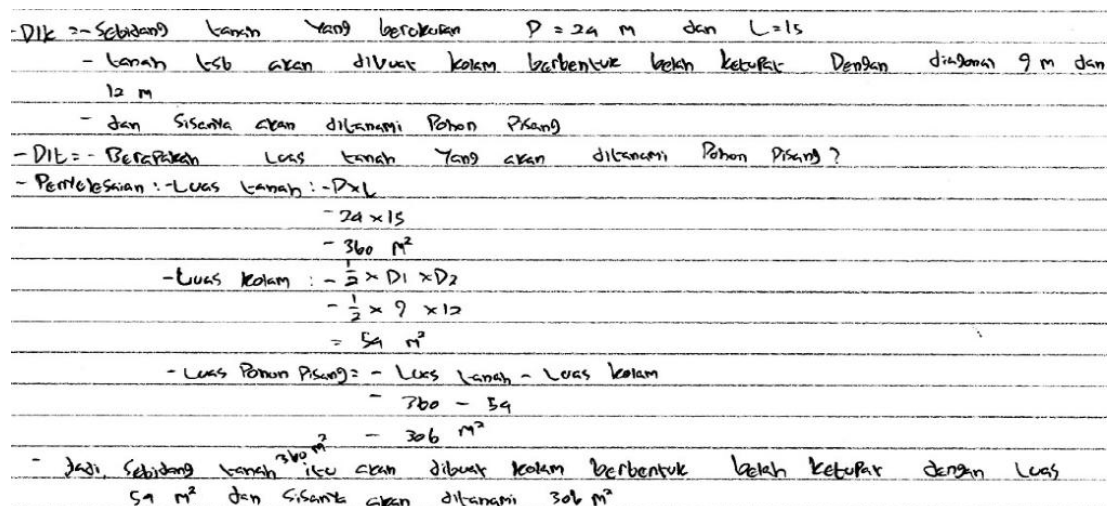 -Dik =- Sebidang tanah yang berukuran P = 24 m dan L = 15
- tanah tsb akan dibuat kolam berbentuk belah ketupat Dengan diagonal 9 m dan
12 m
- dan sisanya akan ditanami Pohon Pisang
- Dit = - Berapakah Luas tanah Yang akan ditanami Pohon Pisang?
- Penyelesaian : - Luas tanah : - P x L
- 24 x 15
- 360 m²
- Luas kolam : - 1/2 x D1 x D2
- 1/2 x 9 x 12
= 54 m²
- Luas Pohon Pisang = - Luas tanah - Luas kolam
- 360 - 54
- 306 m²
- Jadi, Sebidang tanah 360 m² itu akan dibuat kolam berbentuk belah ketupat dengan Luas
54 m² dan sisanya akan ditanami 306 m²